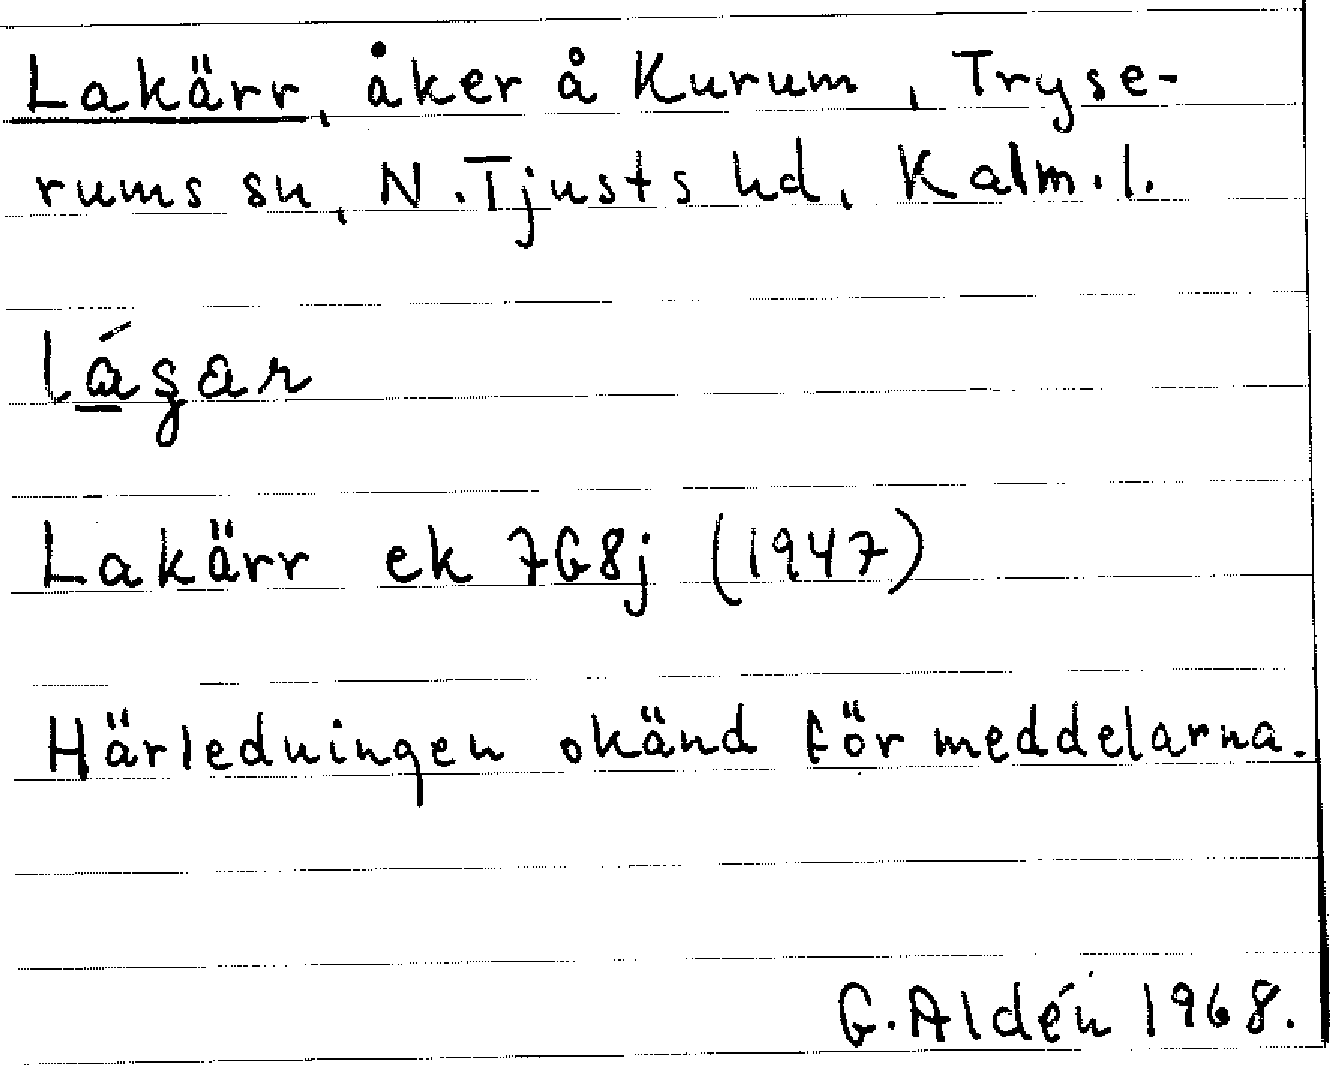 Lakärr, åker å Kurum, Tryse-
rums sn, N. Tjusts hd, Kalm. l.
Lakärr ek 7G8j (1947)
Härledningen okänd för meddelarna.
G. Aldén 1968.